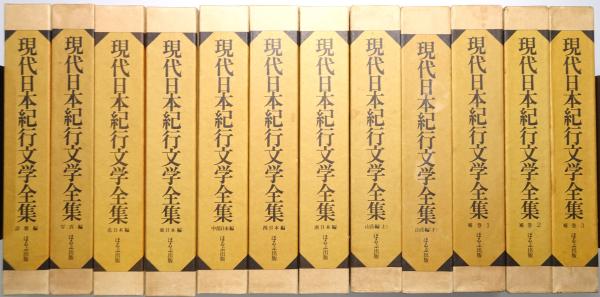 現代日本紀行文学全集
詩歌編
ほるぷ出版
現代日本紀行文学全集
写真編
ほるぷ出版
現代日本紀行文学全集
北日本編
ほるぷ出版
現代日本紀行文学全集
東日本編
ほるぷ出版
現代日本紀行文学全集
中部日本編
ほるぷ出版
現代日本紀行文学全集
西日本編
ほるぷ出版
現代日本紀行文学全集
南日本編
ほるぷ出版
現代日本紀行文学全集
山岳編(上)
ほるぷ出版
現代日本紀行文学全集
山岳編(下)
ほるぷ出版
現代日本紀行文学全集
補巻1
ほるぷ出版
現代日本紀行文学全集
補巻2
ほるぷ出版
現代日本紀行文学全集
補巻3
ほるぷ出版